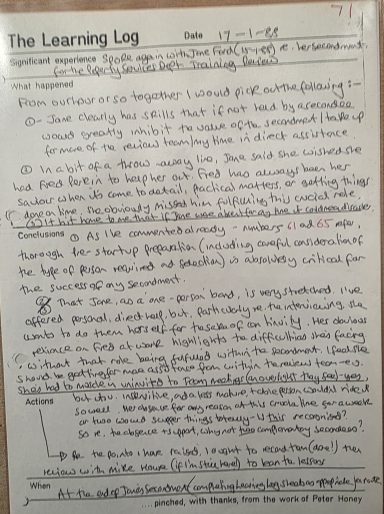 71
The Learning Log Date 17-1-88
Significant experience Spoke again with Jane Ford (15-1-88) re. her secondment
for the Property Services Dept. Training Review
What happened
From our hour or so together I would pick out the following :-
① - Jane clearly has skills that if not held by a secondee
would greatly inhibit the value of the secondment / take up
far more of the review team/my time in direct assistance.
② In a bit of a throw-away line, Jane said she wished she
had Fred to help her out. Fred has always been her
saviour when it's come to detail, practical matters, or getting things
done on time. She obviously missed him fulfilling this crucial role
③ It hit home to me that if Jane were absent for any time it could
Conclusions ① As I've commented already - numbers 61 and 65 refer,
thorough pre-startup preparation (including careful consideration of
the type of person required and selection) is absolutely critical for
the success of any secondment.
② That Jane, as a one-person band, is very stretched. I've
offered personal, direct help, but, particularly re. the interviewing she
wants to do them herself for the sake of continuity. Her obvious
reliance on Fred at work highlights the difficulties she's facing
without that role being fulfilled within the secondment. I feel she
should be getting far more assistance from within the review team - e.g.
She had to muscle in uninvited to
Actions but and a less mature, able person wouldn't ride it
so well. Her absence for any reason at this crucial time for a week
or two would things totally - is this recognised?
So re. the absence + support, why not two complementary secondees?
For the points I have raised, I ought to record them (done!) then
review with Mike House (if I'm still here!) to learn the lessons
When At the end of Jane's Secondment
.... pinched, with thanks, from the work of Peter Honey